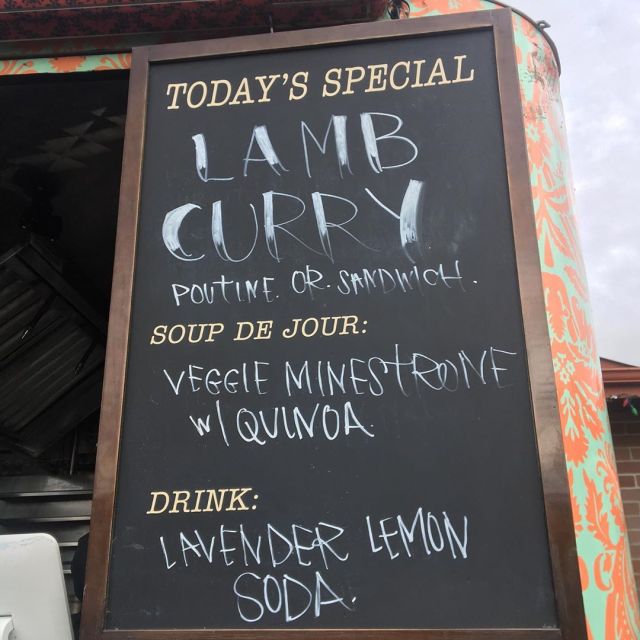 TODAY'S SPECIAL
LAMB
CURRY
POUTINE. OR. SANDWICH.
SOUP DE JOUR:
VEGGIE MINESTRONE
W/ QUINOA
DRINK:
LAVENDER LEMON
SODA.